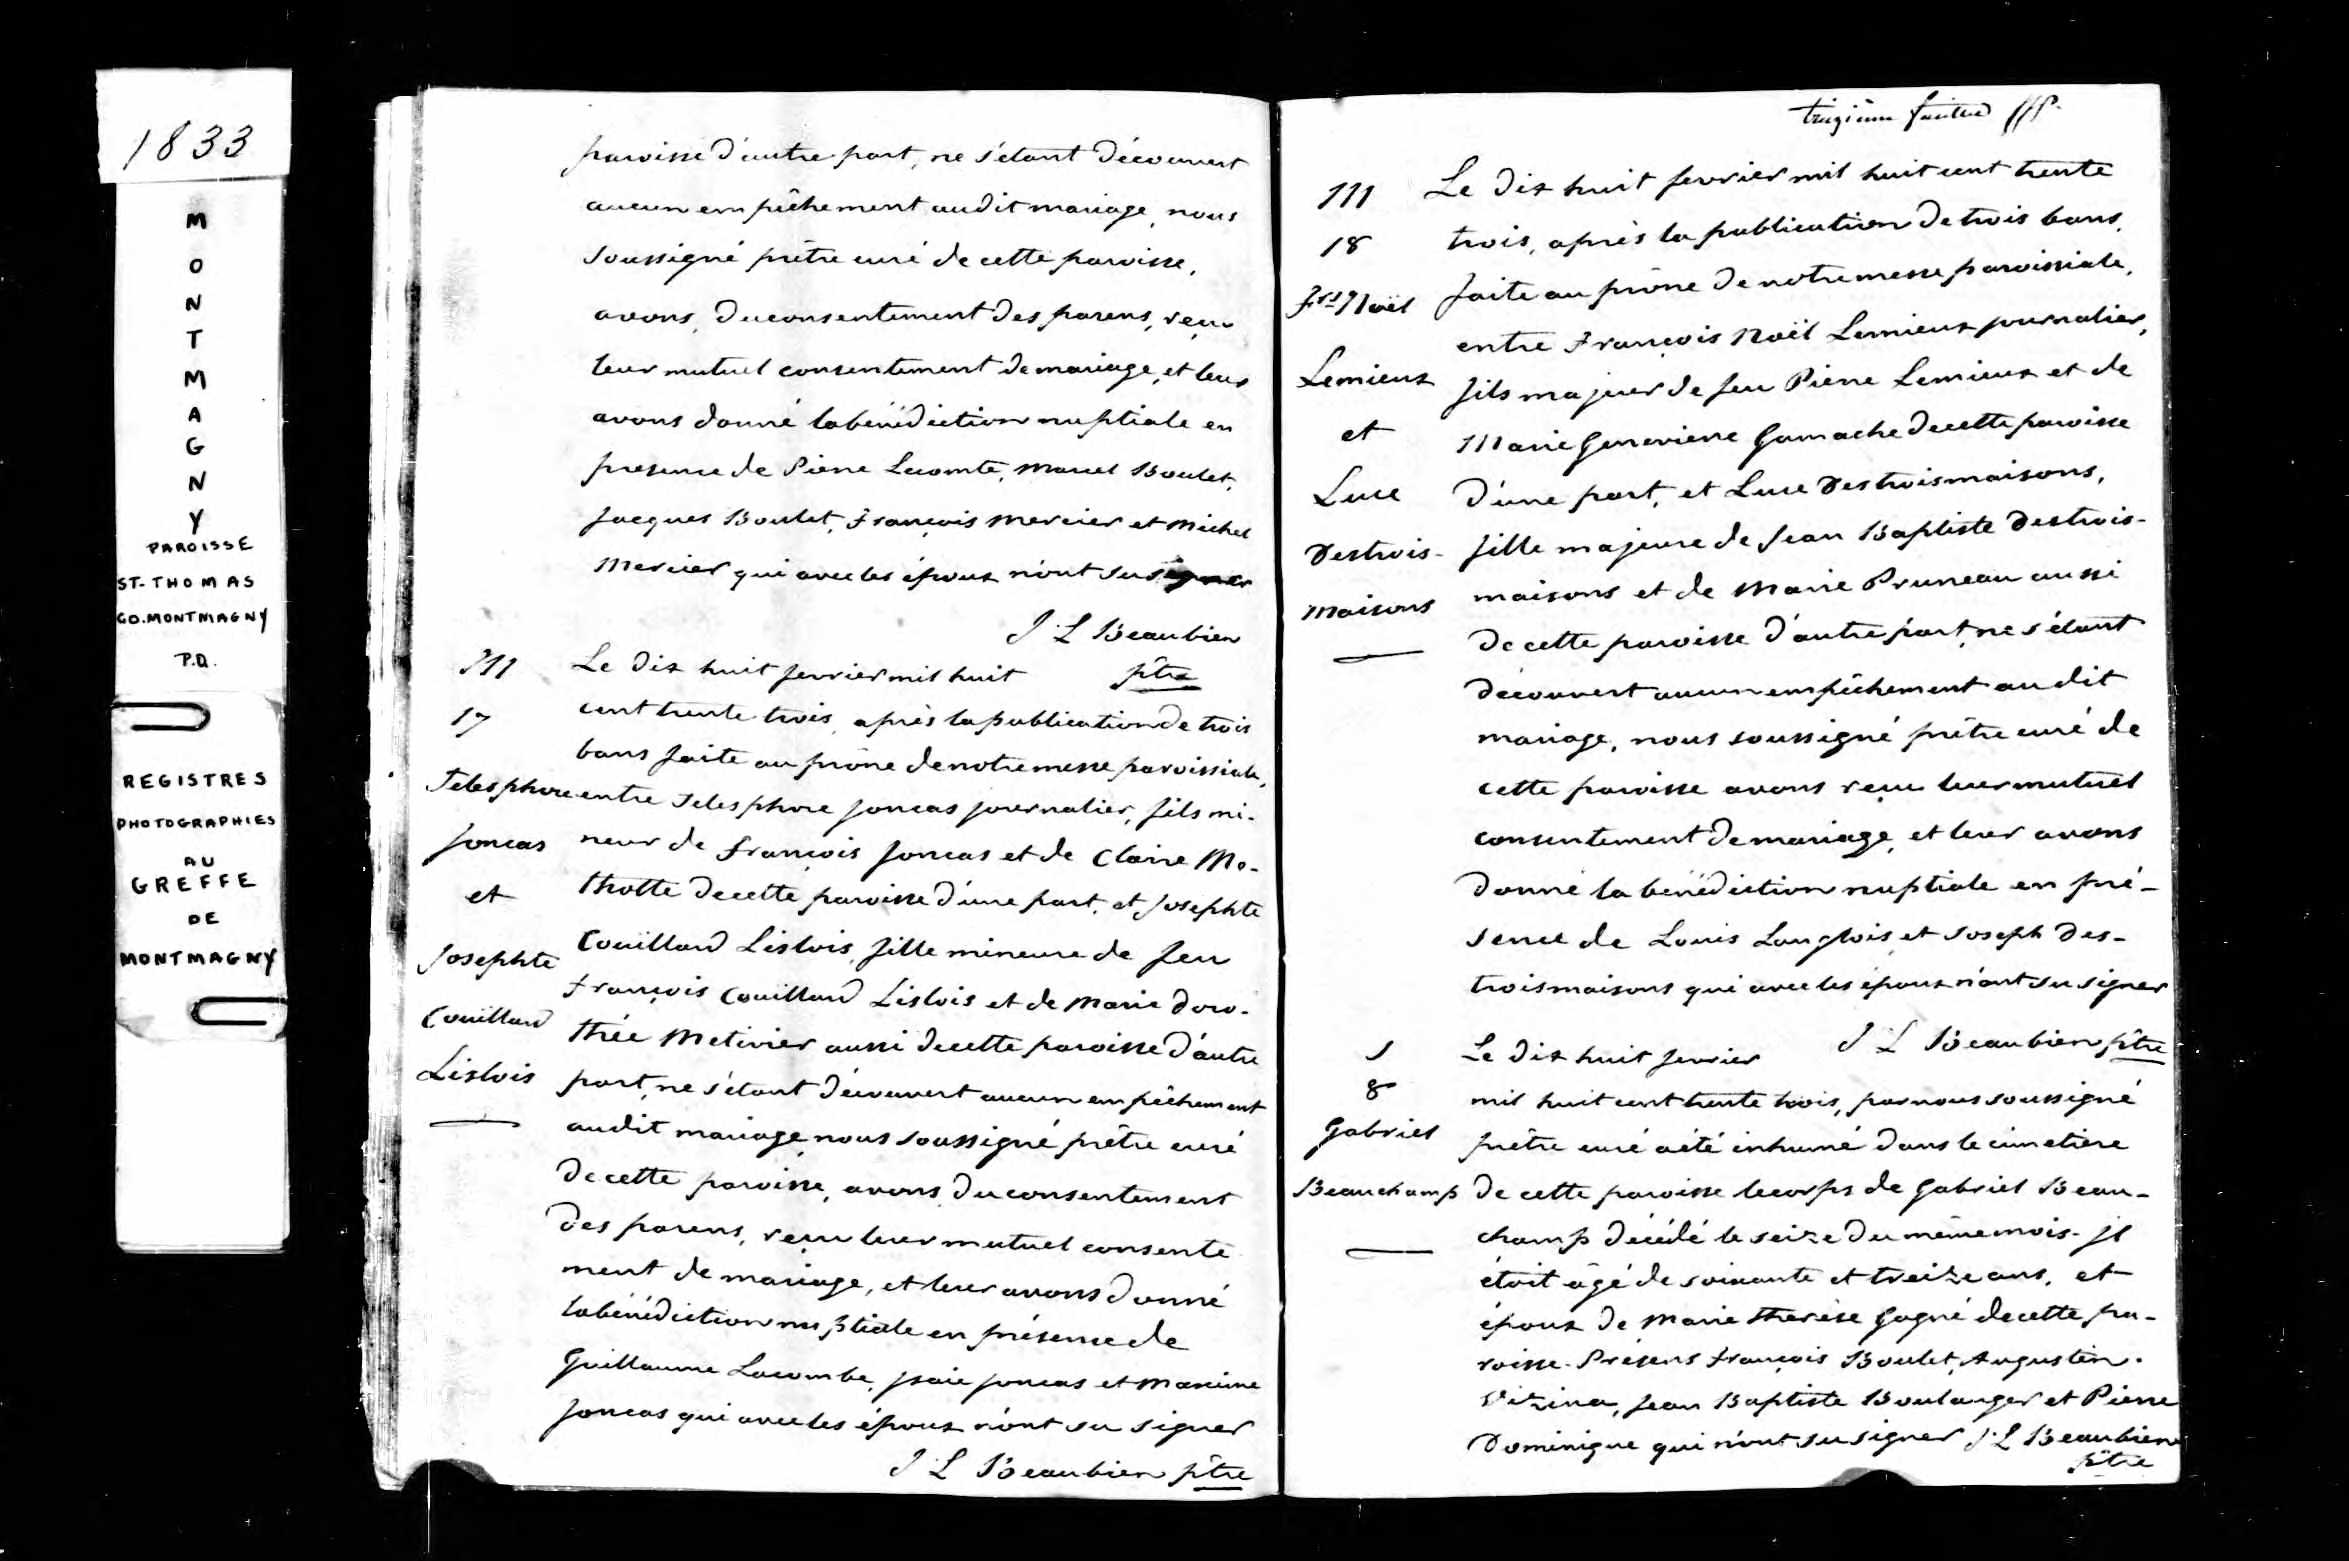 1833
M
O
N
T
M
A
G
N
Y
PAROISSE
ST-THOMAS
CO. MONTMAGNY
P.Q.
REGISTRES
PHOTOGRAPHIES
AU
GREFFE
DE
MONTMAGNY
paroisse d'autre part, ne s'etant découvert
aucun empêchement audit mariage, nous
soussigné prêtre curé de cette paroisse,
avons, du consentement des parens, reçu
leur mutuel consentement de mariage, et leur
avons donné la bénédiction nuptiale en
presence de Pierre Lecomte, Marcel Boulet,
Jacques Boulet, François Mercier et Michel
Mercier qui avec les époux n'ont su signer
J L Beaubien
ptre
M
17
Telesphore
Joncas
et
Josephte
Couillard
Lislois
Le dix huit fevrier mil huit
cent trente trois, après la publication de trois
bans faite au prône de notre messe paroissiale,
entre Telesphore Joncas journalier, fils mi-
neur de François Joncas et de Claire Mo-
thotte de cette paroisse d'une part, et Josephte
Couillard Lislois, fille mineure de feu
François Couillard Lislois et de Marie Doro-
thée Metivier aussi de cette paroisse d'autre
part, ne s'étant découvert aucun empêchement
audit mariage, nous soussigné prêtre curé
de cette paroisse, avons, du consentement
des parens, reçu leur mutuel consente
ment de mariage, et leur avons donné
la bénédiction nuptiale en présence de
Guillaume Lacombe, Jsaie Joncas et Maxime
Joncas qui avec les époux n'ont su signer
J L Beaubien ptre
M
18
Frs Noël
Lemieux
et
Luce
Destrois-
maisons
Le dix huit fevrier mil huit cent trente
trois, après la publication de trois bans,
faite au prône de notre messe paroissiale,
entre François Noël Lemieux journalier,
fils majeur de feu Pierre Lemieux et de
Marie Genevieve Gamache de cette paroisse
d'une part, et Luce Destroismaisons,
fille majeure de Jean Baptiste Destrois-
maisons et de Marie Pruneau aussi
de cette paroisse d'autre part, ne s'étant
découvert aucun empêchement au dit
mariage, nous soussigné prêtre curé de
cette paroisse avons reçu leur mutuel
consentement de mariage, et leur avons
donné la bénédiction nuptiale en pré-
sence de Louis Langlois, et Joseph Des-
troismaisons qui avec les époux n'ont su signer
J L Beaubien ptre
S
8
Gabriel
Beauchamp
Le dix huit fevrier
mil huit cent trente trois, par nous soussigné
prêtre curé a été inhumé dans le cimetiere
de cette paroisse le corps de Gabriel Beau-
champ décédé le seize du même mois. Jl
étoit âgé de soixante et treize ans, et
époux de Marie Therèse Gagné de cette pa-
roisse. Présens François Boulet, Augustin
Vézina, Jean Baptiste Boulanger et Pierre
Dominique qui n'ont su signer J L Beaubien
ptre